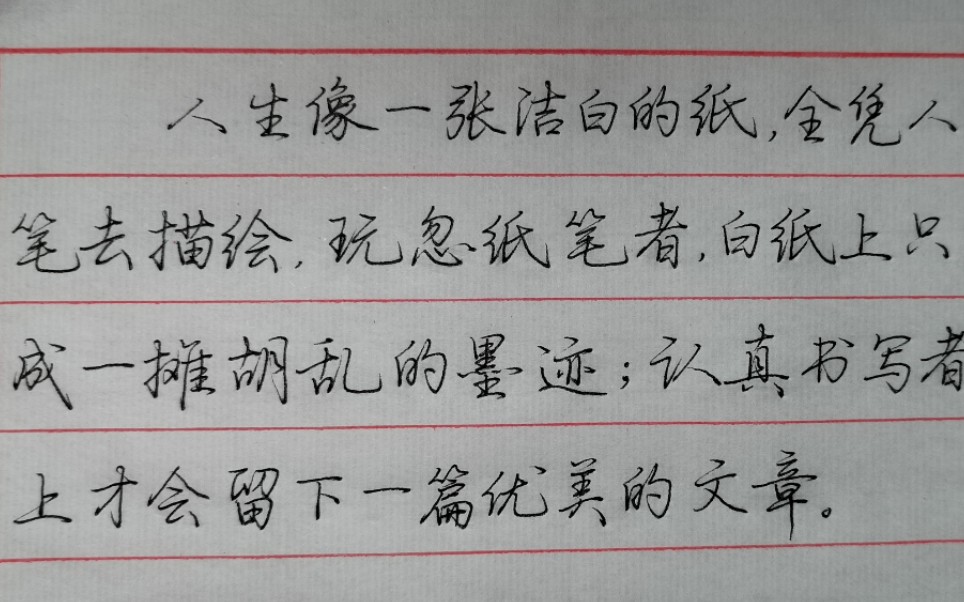 人生像一张洁白的纸,全凭人
笔去描绘,玩忽纸笔者,白纸上只
成一摊胡乱的墨迹;认真书写者
上才会留下一篇优美的文章。